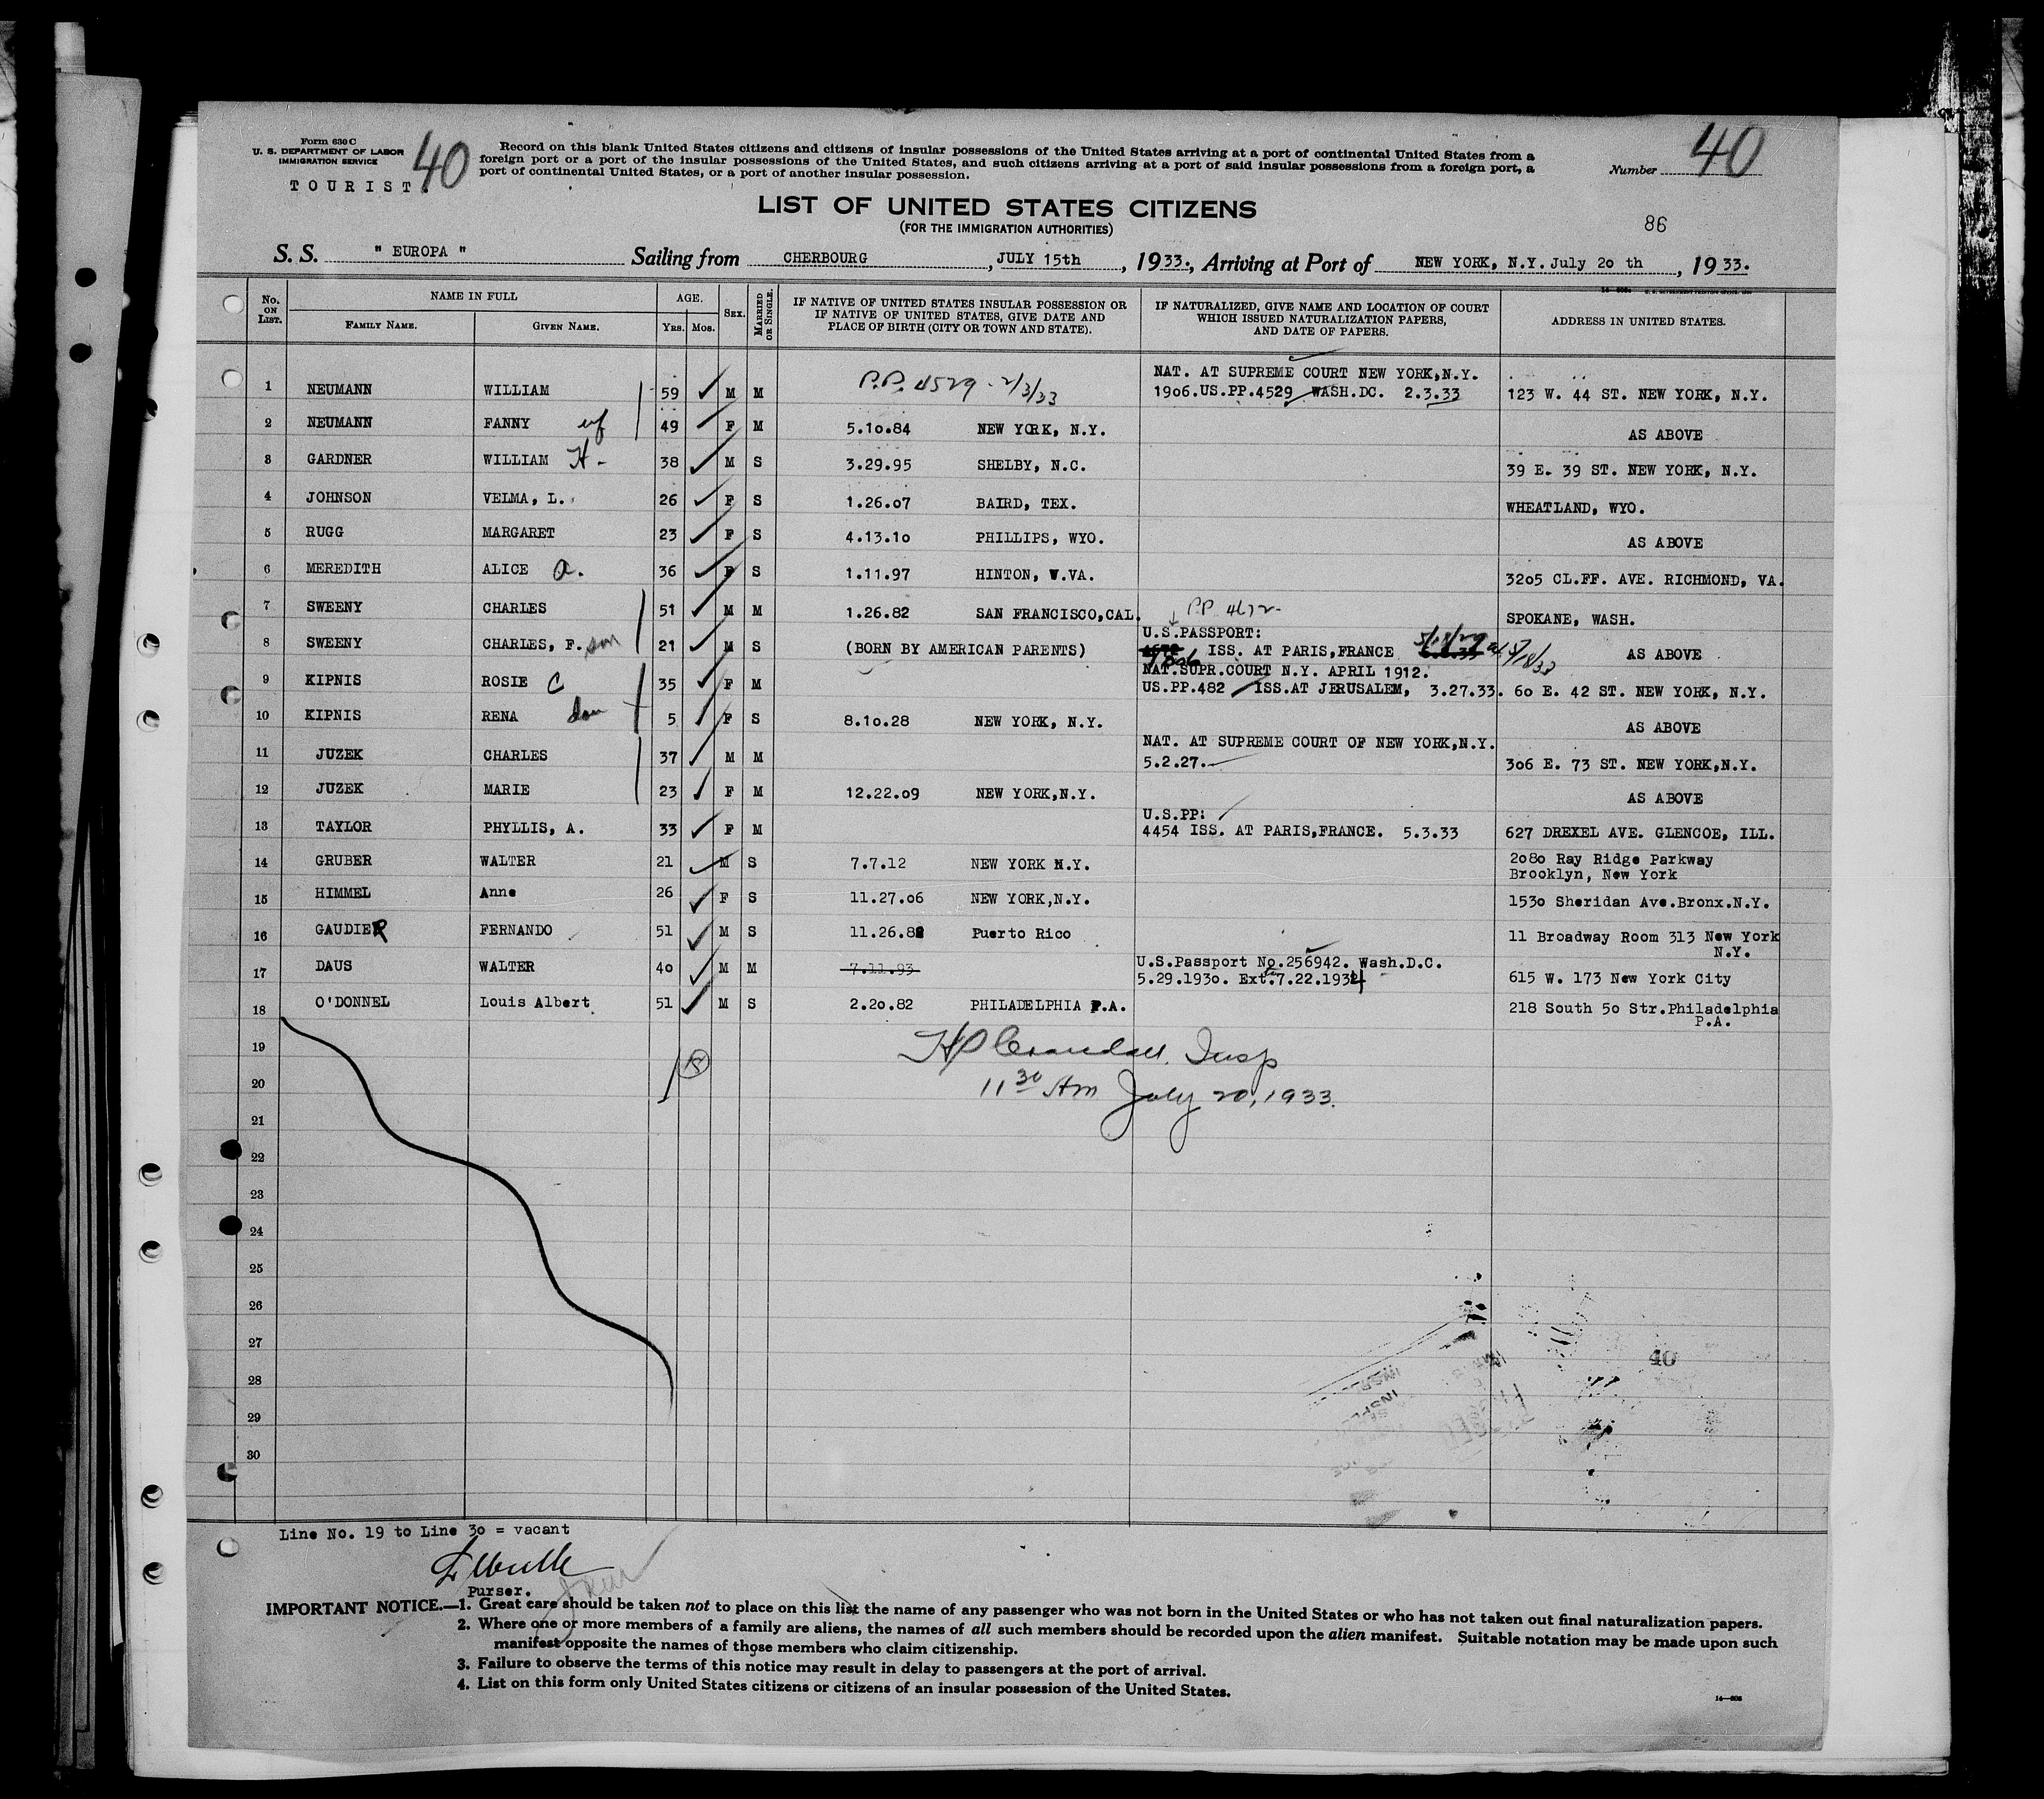 Form 630 C
U. S. DEPARTMENT OF LABOR
IMMIGRATION SERVICE
TOURIST.
40
Record on this blank United States citizens and citizens of insular possessions of the United States arriving at a port of continental United States from a
foreign port or a port of the insular possessions of the United States, and such citizens arriving at a port of said insular possessions from a foreign port, a
port of continental United States, or a port of another insular possession.
Number 40
LIST OF UNITED STATES CITIZENS
(FOR THE IMMIGRATION AUTHORITIES)
86
S. S. " EUROPA " Sailing from CHERBOURG, JULY 15th, 1933., Arriving at Port of NEW YORK, N.Y. July 20 th, 1933.
No. ON LIST. NAME IN FULL FAMILY NAME. GIVEN NAME. AGE. YRS. MOS. SEX. MARRIED OR SINGLE. IF NATIVE OF UNITED STATES INSULAR POSSESSION OR IF NATIVE OF UNITED STATES, GIVE DATE AND PLACE OF BIRTH (CITY OR TOWN AND STATE). IF NATURALIZED, GIVE NAME AND LOCATION OF COURT WHICH ISSUED NATURALIZATION PAPERS, AND DATE OF PAPERS. ADDRESS IN UNITED STATES.
NAT. AT SUPREME COURT NEW YORK,N.Y.
1 NEUMANN WILLIAM 59 M M P.P. 4529 - 2/3/33 1906.US.PP.4529 WASH.DC. 2.3.33 123 W. 44 ST. NEW YORK, N.Y.
2 NEUMANN FANNY wf 49 F M 5.10.84 NEW YORK, N.Y. AS ABOVE
3 GARDNER WILLIAM H- 38 M S 3.29.95 SHELBY, N.C. 39 E. 39 ST. NEW YORK, N.Y.
4 JOHNSON VELMA, L. 26 F S 1.26.07 BAIRD, TEX. WHEATLAND, WYO.
5 RUGG MARGARET 23 F S 4.13.10 PHILLIPS, WYO. AS ABOVE
6 MEREDITH ALICE a. 36 F S 1.11.97 HINTON, W.VA. 3205 CL.FF. AVE. RICHMOND, VA.
7 SWEENY CHARLES 51 M M 1.26.82 SAN FRANCISCO,CAL. P.P. 4672- SPOKANE, WASH.
U.S.PASSPORT:
8 SWEENY CHARLES, F. son 21 M S (BORN BY AMERICAN PARENTS) ISS. AT PARIS,FRANCE 5/18/33 AS ABOVE
NAT.SUPR.COURT N.Y. APRIL 1912.
9 KIPNIS ROSIE C 35 F M US.PP.482 ISS.AT JERUSALEM, 3.27.33. 60 E. 42 ST. NEW YORK, N.Y.
10 KIPNIS RENA dau 5 F S 8.10.28 NEW YORK, N.Y. AS ABOVE
NAT. AT SUPREME COURT OF NEW YORK,N.Y.
11 JUZEK CHARLES 37 M M 5.2.27. 306 E. 73 ST. NEW YORK,N.Y.
12 JUZEK MARIE 23 F M 12.22.09 NEW YORK,N.Y. AS ABOVE
U.S.PP:
13 TAYLOR PHYLLIS, A. 33 F M 4454 ISS. AT PARIS,FRANCE. 5.3.33 627 DREXEL AVE. GLENCOE, ILL.
14 GRUBER WALTER 21 M S 7.7.12 NEW YORK N.Y. 2080 Ray Ridge Parkway
Brooklyn, New York
15 HIMMEL Anne 26 F S 11.27.06 NEW YORK,N.Y. 1530 Sheridan Ave.Bronx.N.Y.
16 GAUDIER FERNANDO 51 M S 11.26.82 Puerto Rico 11 Broadway Room 313 New York
N.Y.
U.S.Passport No.256942. Wash.D.C.
17 DAUS WALTER 40 M M 7.11.93 5.29.1930. Ext.7.22.1934 615 W. 173 New York City
18 O'DONNEL Louis Albert 51 M S 2.20.82 PHILADELPHIA P.A. 218 South 50 Str.Philadelphia
P.A.
19
18
HP Crandall. Insp
20
11 30 Am July 20, 1933.
21
22
23
24
25
26
27
40
28
29
30
Line No. 19 to Line 30 = vacant
Purser.
IMPORTANT NOTICE.—1. Great care should be taken not to place on this list the name of any passenger who was not born in the United States or who has not taken out final naturalization papers.
2. Where one or more members of a family are aliens, the names of all such members should be recorded upon the alien manifest. Suitable notation may be made upon such
manifest opposite the names of those members who claim citizenship.
3. Failure to observe the terms of this notice may result in delay to passengers at the port of arrival.
4. List on this form only United States citizens or citizens of an insular possession of the United States.